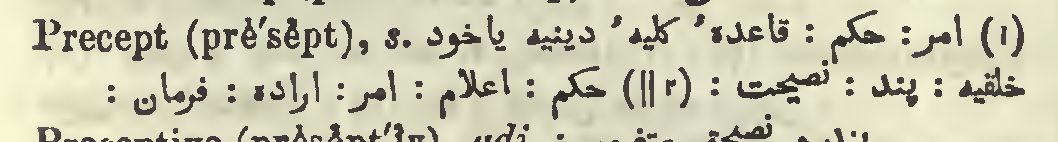 Precept (prē′sĕpt), s. (١) امر : حكم : قاعدهٔ كليهٔ دينيه ياخود
خلقيه : پند : نصيحت : (٢ ||) حكم : اعلام : امر : اراده : فرمان :